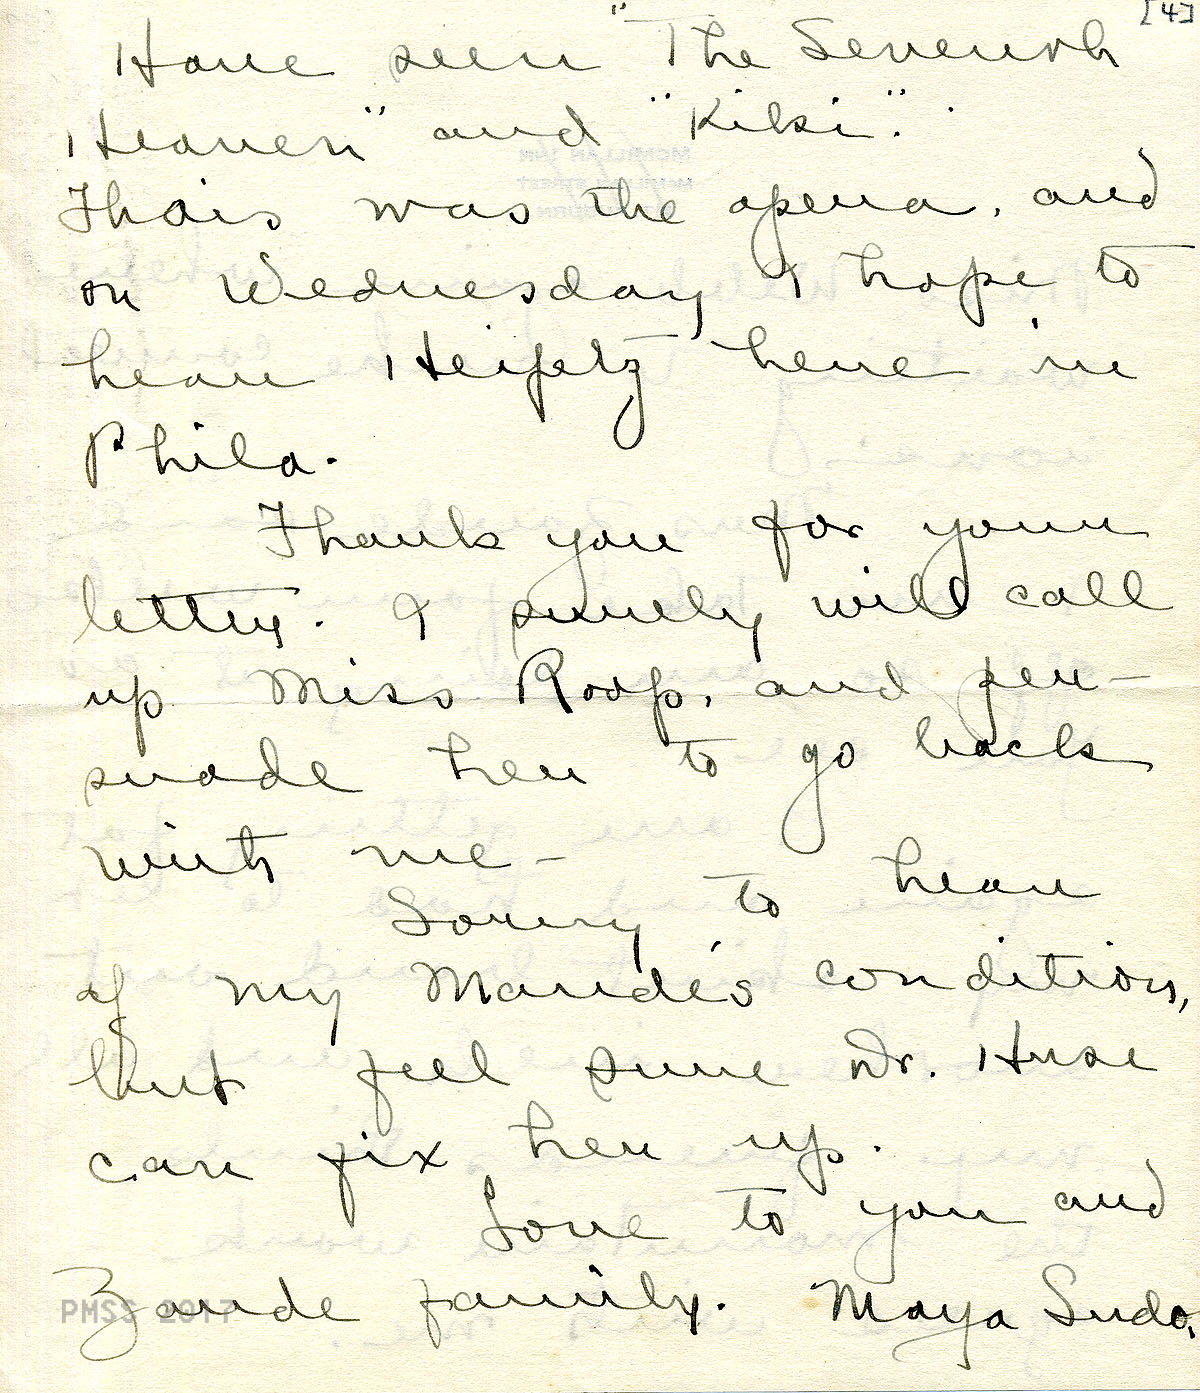 [4]
Have seen "The Seventh
Heaven" and "Kiki".
Thais was the opera, and
on Wednesday I hope to
hear Heifetz here in
Phila.
Thank you for your
letter. I surely will call
up Miss Roop, and per-
suade her to go back
with me -
Sorry to hear
of my Maude's condition,
but feel sure Dr. Huse
can fix her up.
Love to you and
Zande family. Maya Sudo.
PMSS 2017